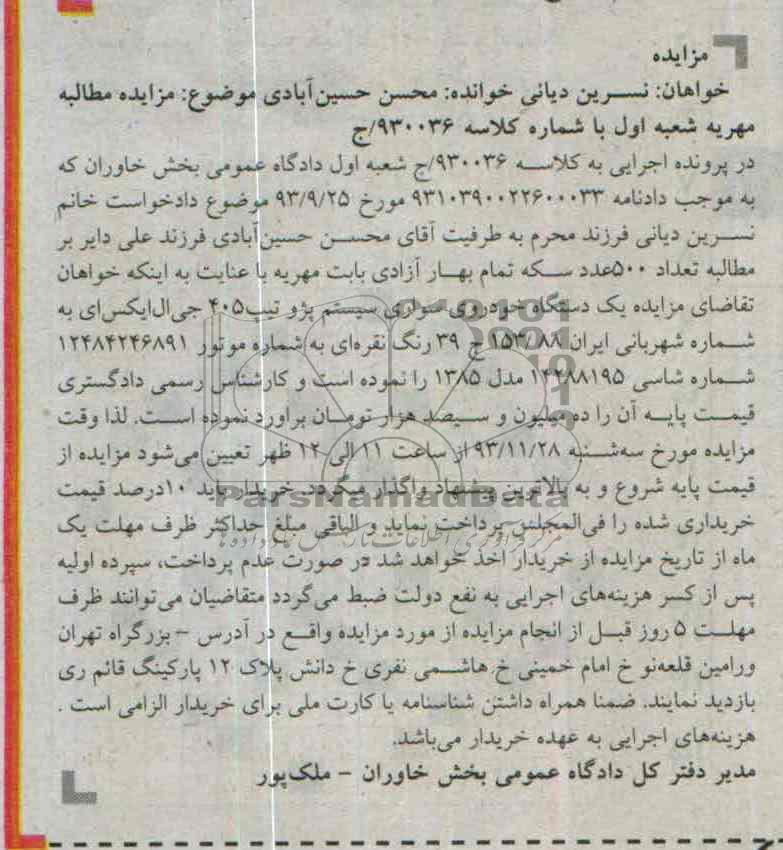 مزایده
خواهان: نسرین دیانی خوانده: محسن حسین‌آبادی موضوع: مزایده مطالبه
مهریه شعبه اول با شماره کلاسه ۹۳۰۰۳۶/ج
در پرونده اجرایی به کلاسه ۹۳۰۰۳۶/ج شعبه اول دادگاه عمومی بخش خاوران که
به موجب دادنامه ۹۳۱۰۳۹۰۰۲۲۶۰۰۰۳۳ مورخ ۹۳/۹/۲۵ موضوع دادخواست خانم
نسرین دیانی فرزند محرم به طرفیت آقای محسن حسین‌آبادی فرزند علی دایر بر
مطالبه تعداد ۵۰۰عدد سکه تمام بهار آزادی بابت مهریه با عنایت به اینکه خواهان
تقاضای مزایده یک دستگاه خودروی سواری سیستم پژو تیپ۴۰۵ جی‌ال‌ایکس‌ای به
شماره شهربانی ایران ۸۸/ ۱۵۳ج ۳۹ رنگ نقره‌ای به شماره موتور ۱۲۴۸۴۲۴۶۸۹۱
شماره شاسی ۱۴۲۸۸۱۹۵ مدل ۱۳۸۵ را نموده است و کارشناس رسمی دادگستری
قیمت پایه آن را ده میلیون و سیصد هزار تومان براورد نموده است. لذا وقت
مزایده مورخ سه‌شنبه ۹۳/۱۱/۲۸ از ساعت ۱۱ الی ۱۲ ظهر تعیین می‌شود مزایده از
قیمت پایه شروع و به بالاترین پیشنهاد واگذار میگردد. خریدار باید ۱۰درصد قیمت
خریداری شده را فی‌المجلس پرداخت نماید و الباقی مبلغ حداکثر ظرف مهلت یک
ماه از تاریخ مزایده از خریدار اخذ خواهد شد در صورت عدم پرداخت، سپرده اولیه
پس از کسر هزینه‌های اجرایی به نفع دولت ضبط می‌گردد متقاضیان می‌توانند ظرف
مهلت ۵ روز قبل از انجام مزایده از مورد مزایده واقع در آدرس – بزرگراه تهران
ورامین قلعه‌نو خ امام خمینی خ هاشمی نفری خ دانش پلاک ۱۲ پارکینگ قائم ری
بازدید نمایند. ضمنا همراه داشتن شناسنامه یا کارت ملی برای خریدار الزامی است .
هزینه‌های اجرایی به عهده خریدار می‌باشد.
مدیر دفتر کل دادگاه عمومی بخش خاوران – ملک‌پور
ParsNamadData